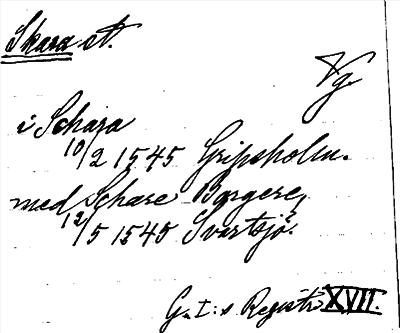 Skara st.
Vg.
i Schara
10/2 1545 Gripsholm.
med Schare Borgere,
12/5 1545 Svartsjö.
G. I:s Registr XVII.